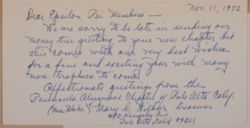 Nov. 11, 1972
Dear Epsilon Psi Members —
We are sorry to be late in sending our
money tree greeting to your new chapter but
this comes with our very best wishes
for a fine and exciting year with many
more trophies to come!
Affectionate greetings from the
Peninsula Alumnae Chapter of Palo Alto, Calif.
Mary C.
Palo Alto, Calif 94301